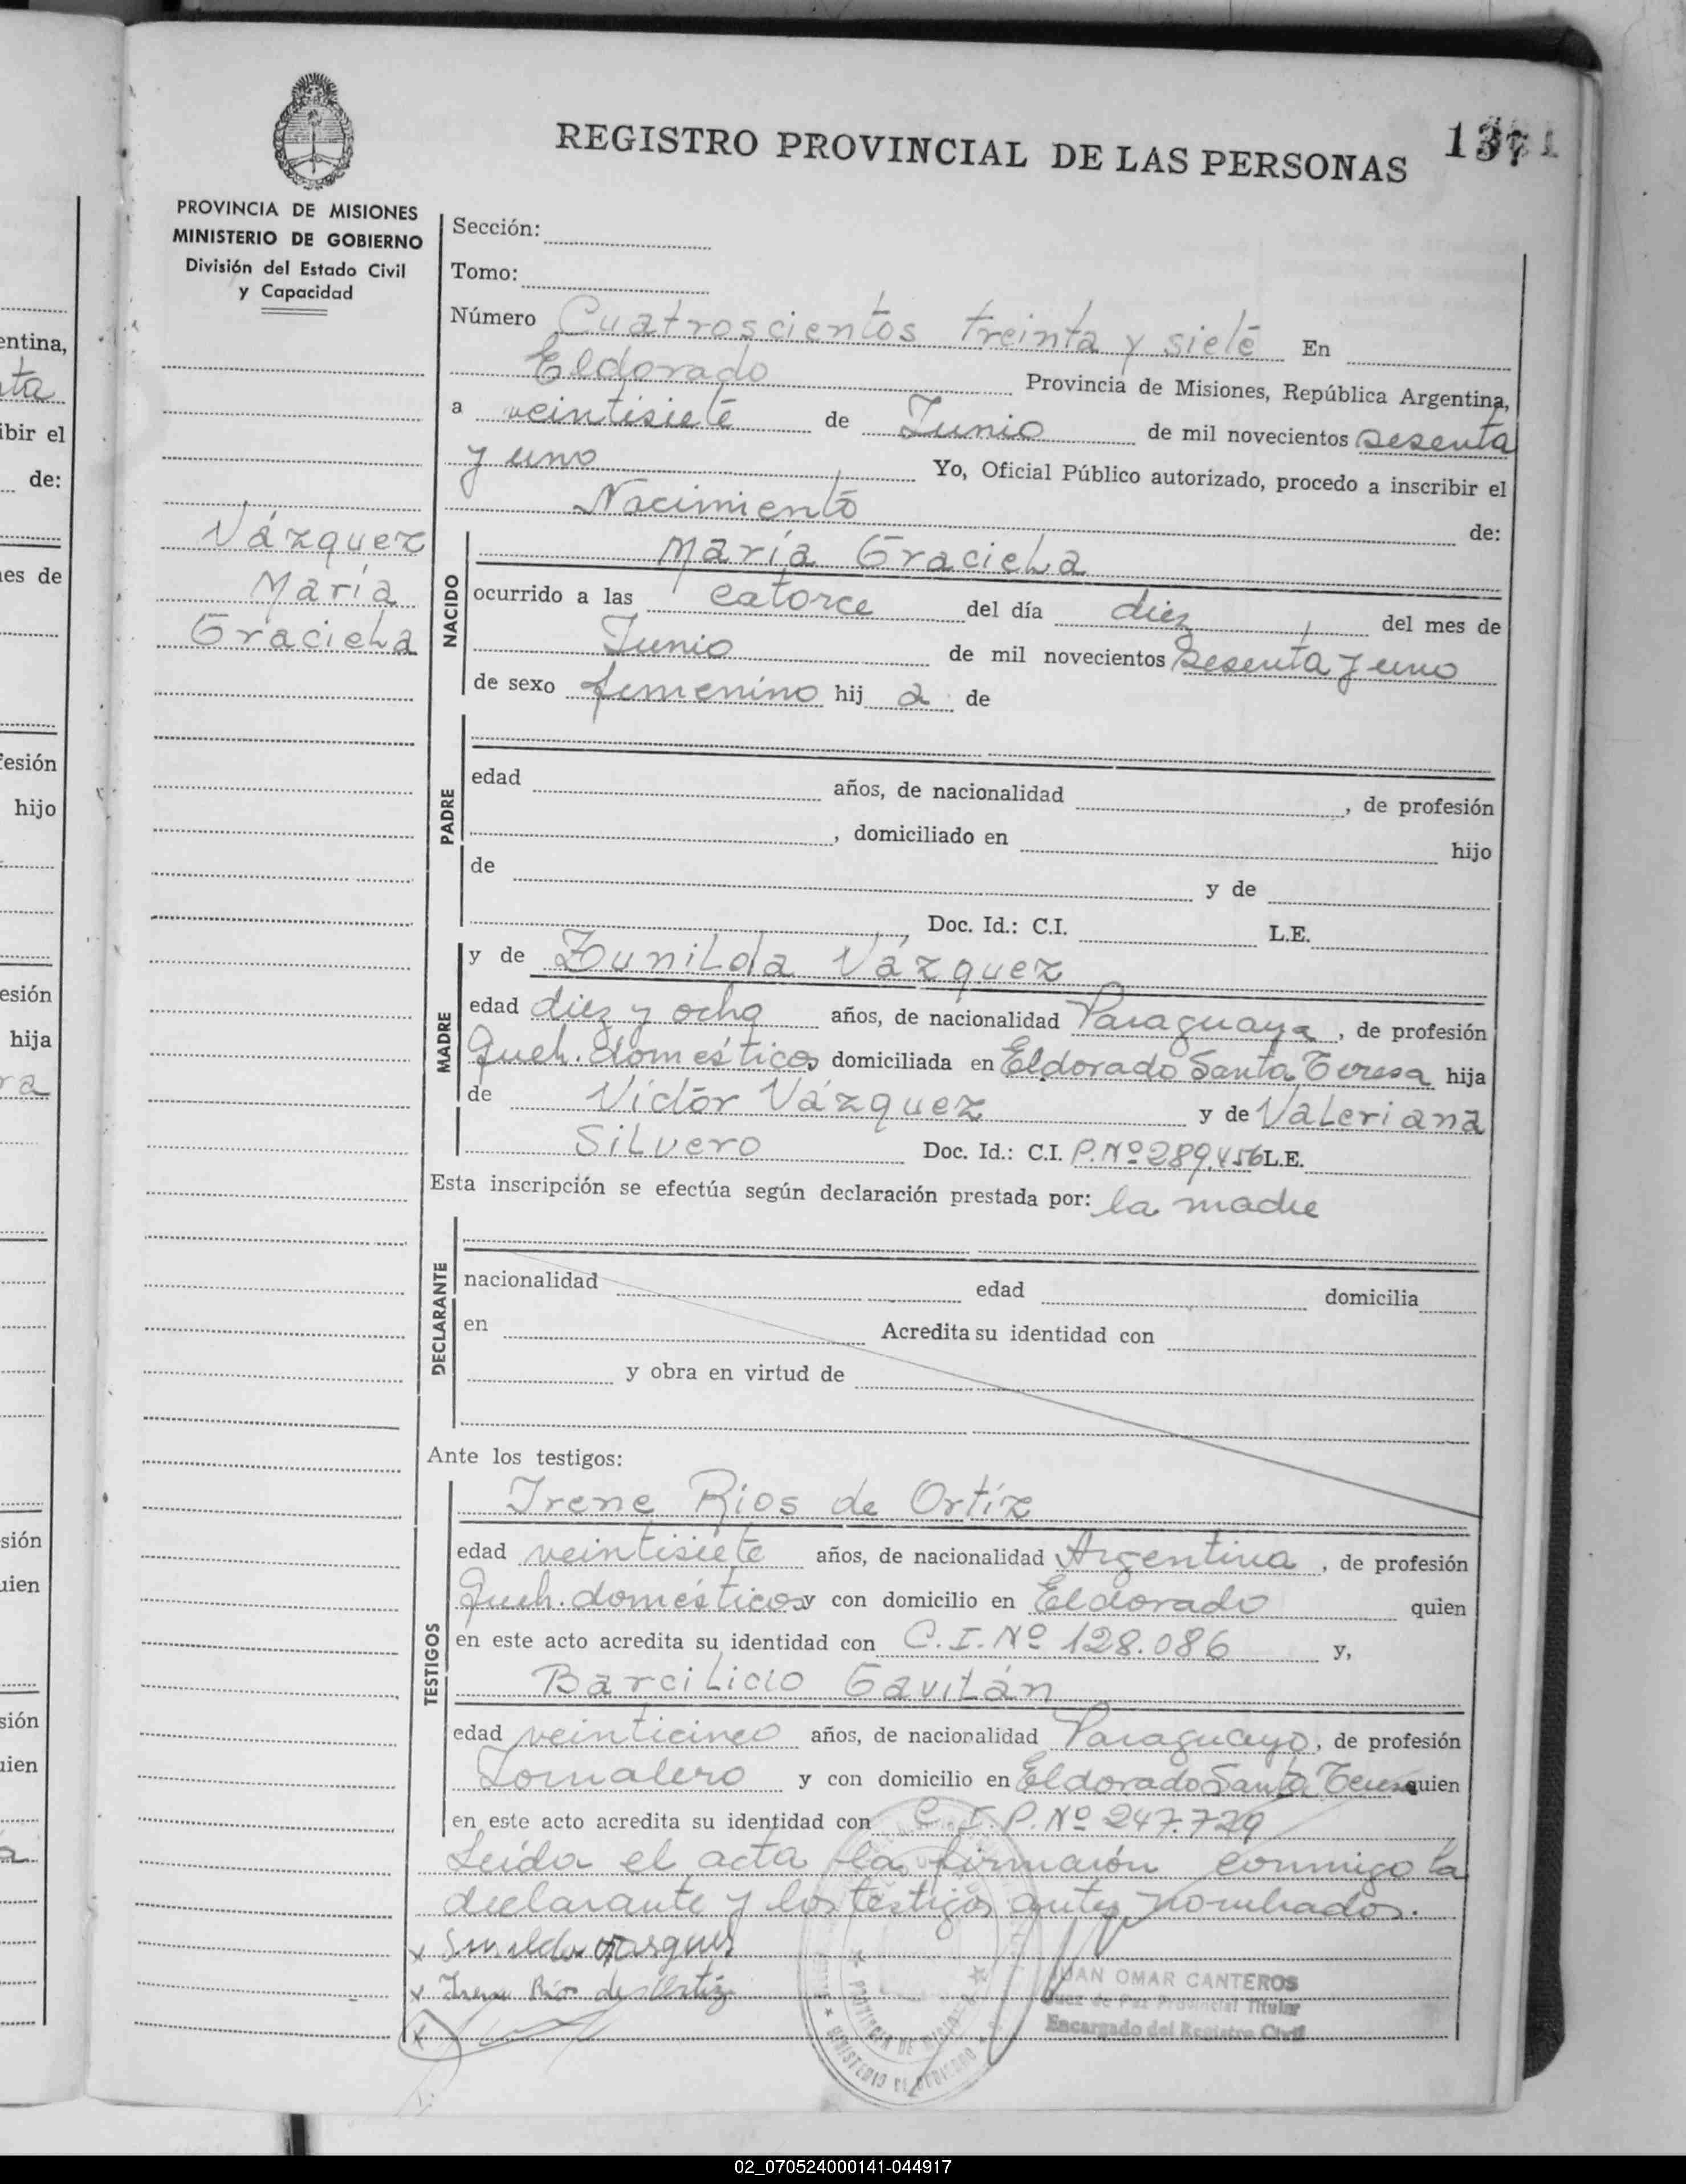 REGISTRO PROVINCIAL DE LAS PERSONAS
PROVINCIA DE MISIONES
MINISTERIO DE GOBIERNO
División del Estado Civil
y Capacidad
Vázquez
María
Graciela
Sección:
Tomo:
Número Cuatroscientos treinta y siete En
Eldorado Provincia de Misiones, República Argentina,
a veintisiete de Junio de mil novecientos sesenta
y uno Yo, Oficial Público autorizado, procedo a inscribir el
Nacimiento de:
NACIDO
María Graciela
ocurrido a las catorce del día diez del mes de
Junio de mil novecientos sesenta y uno
de sexo femenino hij a de
PADRE
edad años, de nacionalidad , de profesión
, domiciliado en hijo
de y de
, Doc. Id.: C.I. L.E.
MADRE
y de Zunilda Vázquez
edad diez y ocho años, de nacionalidad Paraguaya , de profesión
Queh. domésticos domiciliada en Eldorado Santa Teresa hija
de Victor Vázquez y de Valeriana
Silvero Doc. Id.: C.I. P.Nº 289.456 L.E.
Esta inscripción se efectúa según declaración prestada por: la madre
DECLARANTE
nacionalidad edad domicilia
en Acredita su identidad con
y obra en virtud de
Ante los testigos:
TESTIGOS
Irene Rios de Ortíz
edad veintisiete años, de nacionalidad Argentina , de profesión
Queh. domésticos y con domicilio en Eldorado quien
en este acto acredita su identidad con C.I. Nº 128.086 y,
Barcilicio Gavilán
edad veinticinco años, de nacionalidad Paraguayo, de profesión
Jornalero y con domicilio en Eldorado Santa Teresa quien
en este acto acredita su identidad con C.I.P. Nº 247.729
Leída el acta la firmarón conmigo la
declarante y los testigos antes nombrados.
x
x Irene Rios de Ortiz
x
JUAN OMAR CANTEROS
Juez de Paz Provincial Titular
Encargado del Registro Civil
PROVINCIA DE MISIONES
MINISTERIO DE GOBIERNO
entina,
ta
ibir el
de:
nes de
fesión
hijo
esión
hija
ra
sión
uien
sión
uien
a
02_070524000141-044917